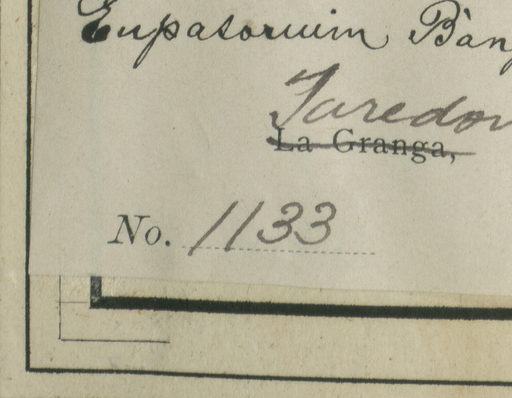 Eupatorium Ban
Taredon
La Granga,
No. 1133